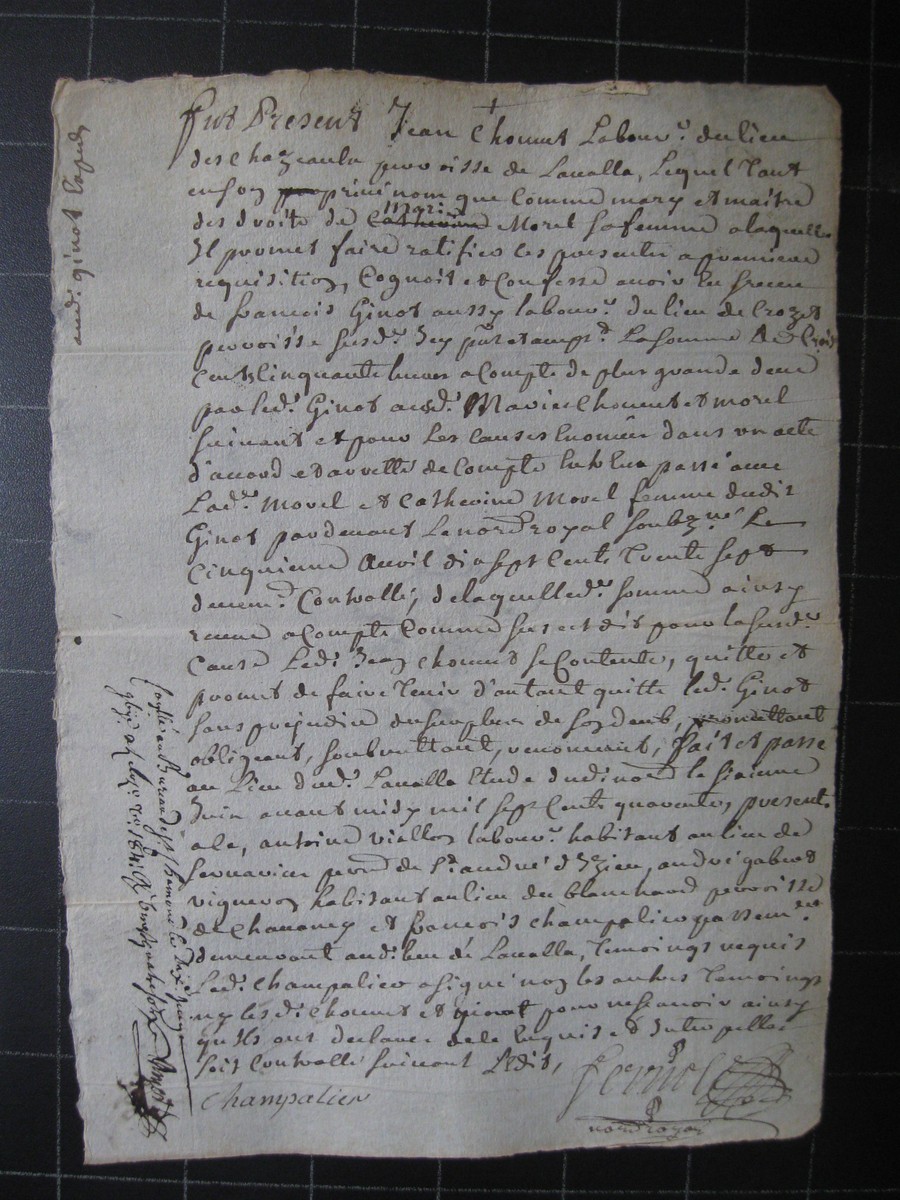 Fut Present Jean Chomet Labour.r du lieu
des Chazeaulx parroisse de Lavalla, Lequel tant
en son privé nom que Comme mary et maitre
des droits de Marie Morel sa femme a laquelle
Il promet faire ratiffier les presentes a premiere
requisition, Cognoit et Confesse avoir eu et receu
de francois Ginot aussy labour.r du lieu de Crozet
parroisse susd.e Icy pnt et accept.t La somme de Trois
Cents Cinquante livres a Compte de plus grande deue
par led.t Ginot ausd.ts Maries Chomet et morel
suivant et pour Les Causes Enoncées dans un acte
d'accord et arretté de Compte entre Eux passé avec
Lad.e Morel et Catherine Morel femme dudit
Ginot pardevant Le not.re royal soubz.né Le
Cinquieme Avril dix sept Cents Trente sept
duem.t Controllé, de laquelle d.e somme ainsy
receue a Compte Comme sus est dit pour la susd.e
Cause Led.t Jean Chomet se Contente, quitte et
promet de faire tenir d'autant quitte led.t Ginot
sans prejudice du surplus de son deub, promettant
obligeant, soubmettant, renoncant, fait et passé
au lieu dud.t Lavalla Etude dudi not.re le sixieme
Juin avant midy mil sept Cents quarante, presents
a Ce, antoine viallon labour.r habitant au lieu de
par.se de St andré d'Izieu, andré gabert
vigneron habitant au lieu du blanchard parroisse
de Chavanay et francois Champalier passem.er
demeurant audi lieu de Lavalla, temoings requis
Led.t Champalier a signé non les autres temoings
ny lesdi Chomet et Ginot pour ne scavoir ainsy
qu'ils ont declaré de ce Enquis et Interpellés
soit Controllé suivant Ledit,
Champalier
not.re royal